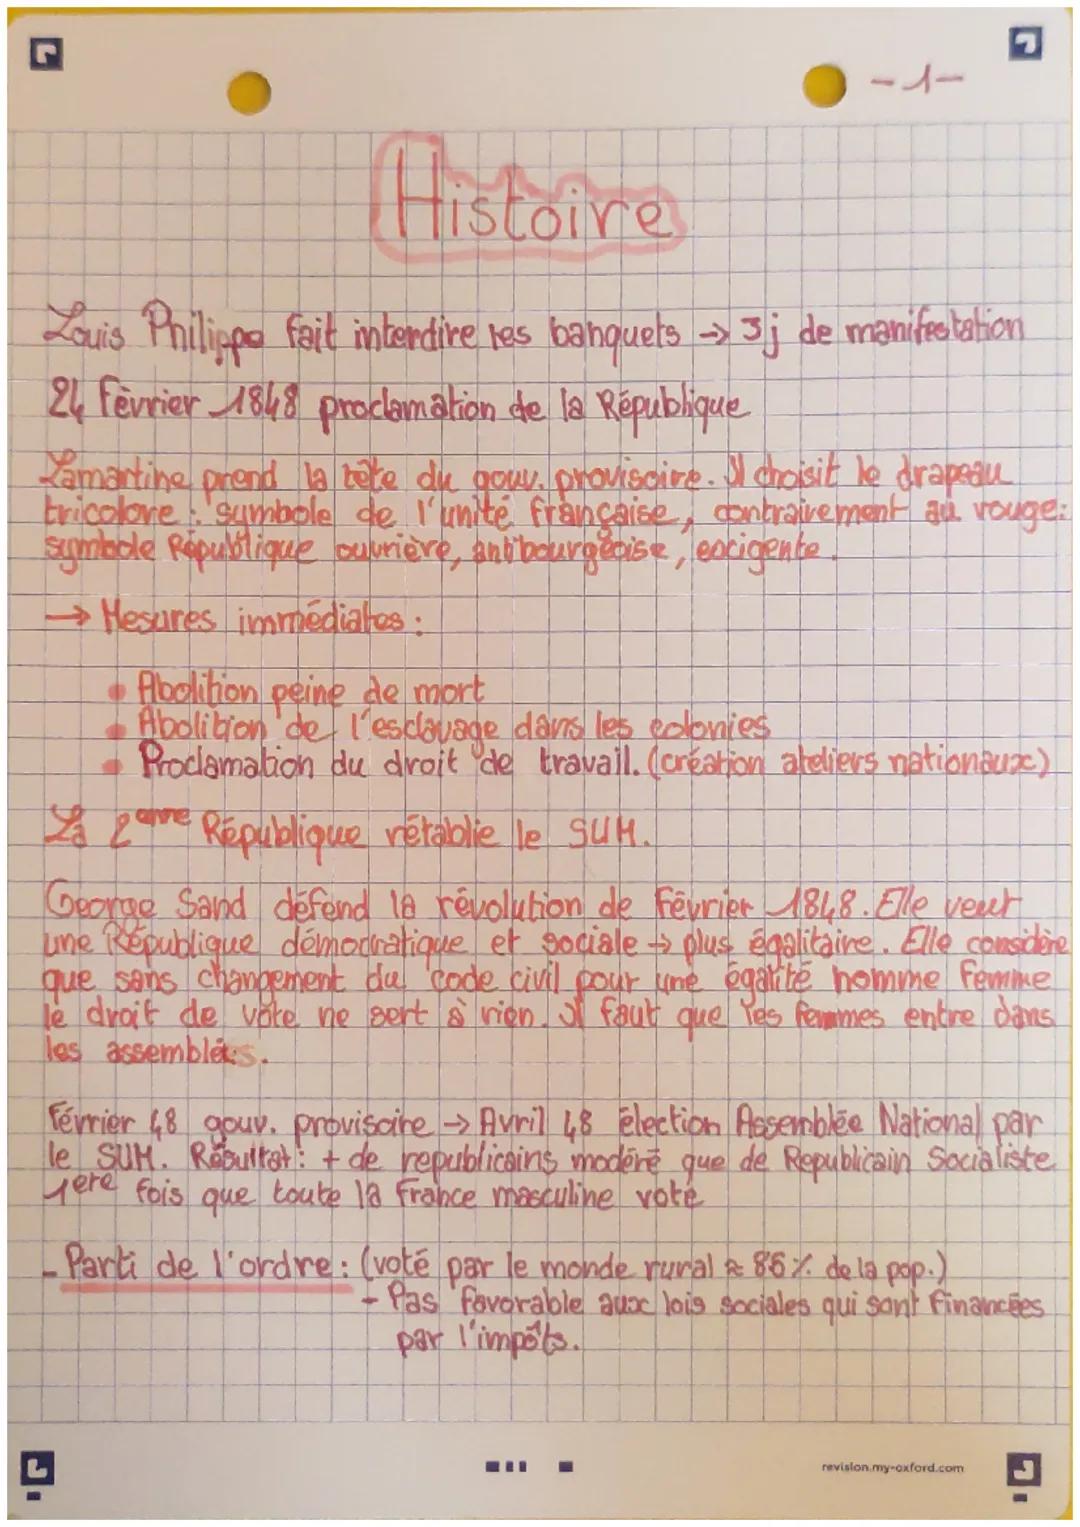 -1-
Histoire
Louis Philippe fait interdire les banquets → 3j de manifestation
24 Février 1848 proclamation de la République
Lamartine prend la tête du gouv. provisoire. Il choisit le drapeau
tricolore : symbole de l'unité française, contrairement au rouge:
symbole République ouvrière, antibourgeoise, exigente.
→ Mesures immédiates :
• Abolition peine de mort
• Abolition de l'esclavage dans les colonies
• Proclamation du droit de travail. (création ateliers nationaux)
La 2ème République rétablie le SUM.
George Sand défend la révolution de Février 1848. Elle veut
une République démocratique et sociale → plus égalitaire. Elle considère
que sans changement du code civil pour une égalité homme femme
le droit de vote ne sert à rien. Il faut que les femmes entre dans
les assemblées.
Février 48 gouv. provisoire → Avril 48 élection Assemblée National par
le SUM. Résultat : + de republicains modéré que de Republicain Socialiste
1ère fois que toute la France masculine vote
- Parti de l'ordre : (voté par le monde rural ≈ 86% de la pop.)
- Pas favorable aux lois sociales qui sont financées
par l'impôts.
revision.my-oxford.com